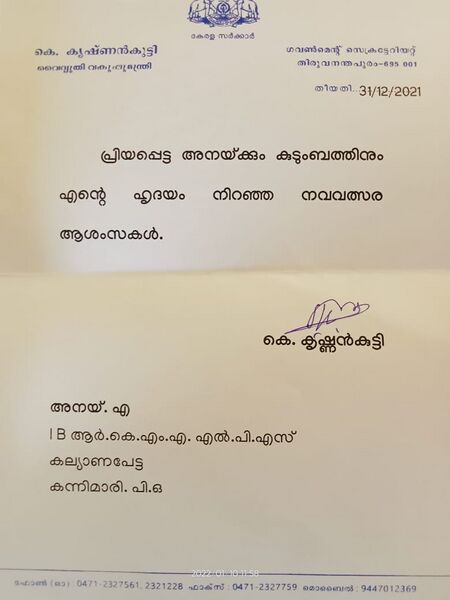 കേരള സർക്കാർ
കെ. കൃഷ്ണൻകുട്ടി
വൈദ്യുതി വകുപ്പുമന്ത്രി
ഗവൺമെന്റ് സെക്രട്ടേറിയറ്റ്
തിരുവനന്തപുരം-695 001
തീയതി..31/12/2021
പ്രിയപ്പെട്ട അനയ്ക്കും കുടുംബത്തിനും
എന്റെ ഹൃദയം നിറഞ്ഞ നവവത്സര
ആശംസകൾ.
കെ. കൃഷ്ണൻകുട്ടി
അനയ്. എ
I B ആർ.കെ.എം.എ. എൽ.പി.എസ്
കല്യാണപേട്ട
കന്നിമാരി. പി.ഒ
2022/01/10 11:38
ഫോൺ (ഓ) : 0471-2327561, 2321228 ഫാക്സ് : 0471-2327759 മൊബൈൽ : 9447012369